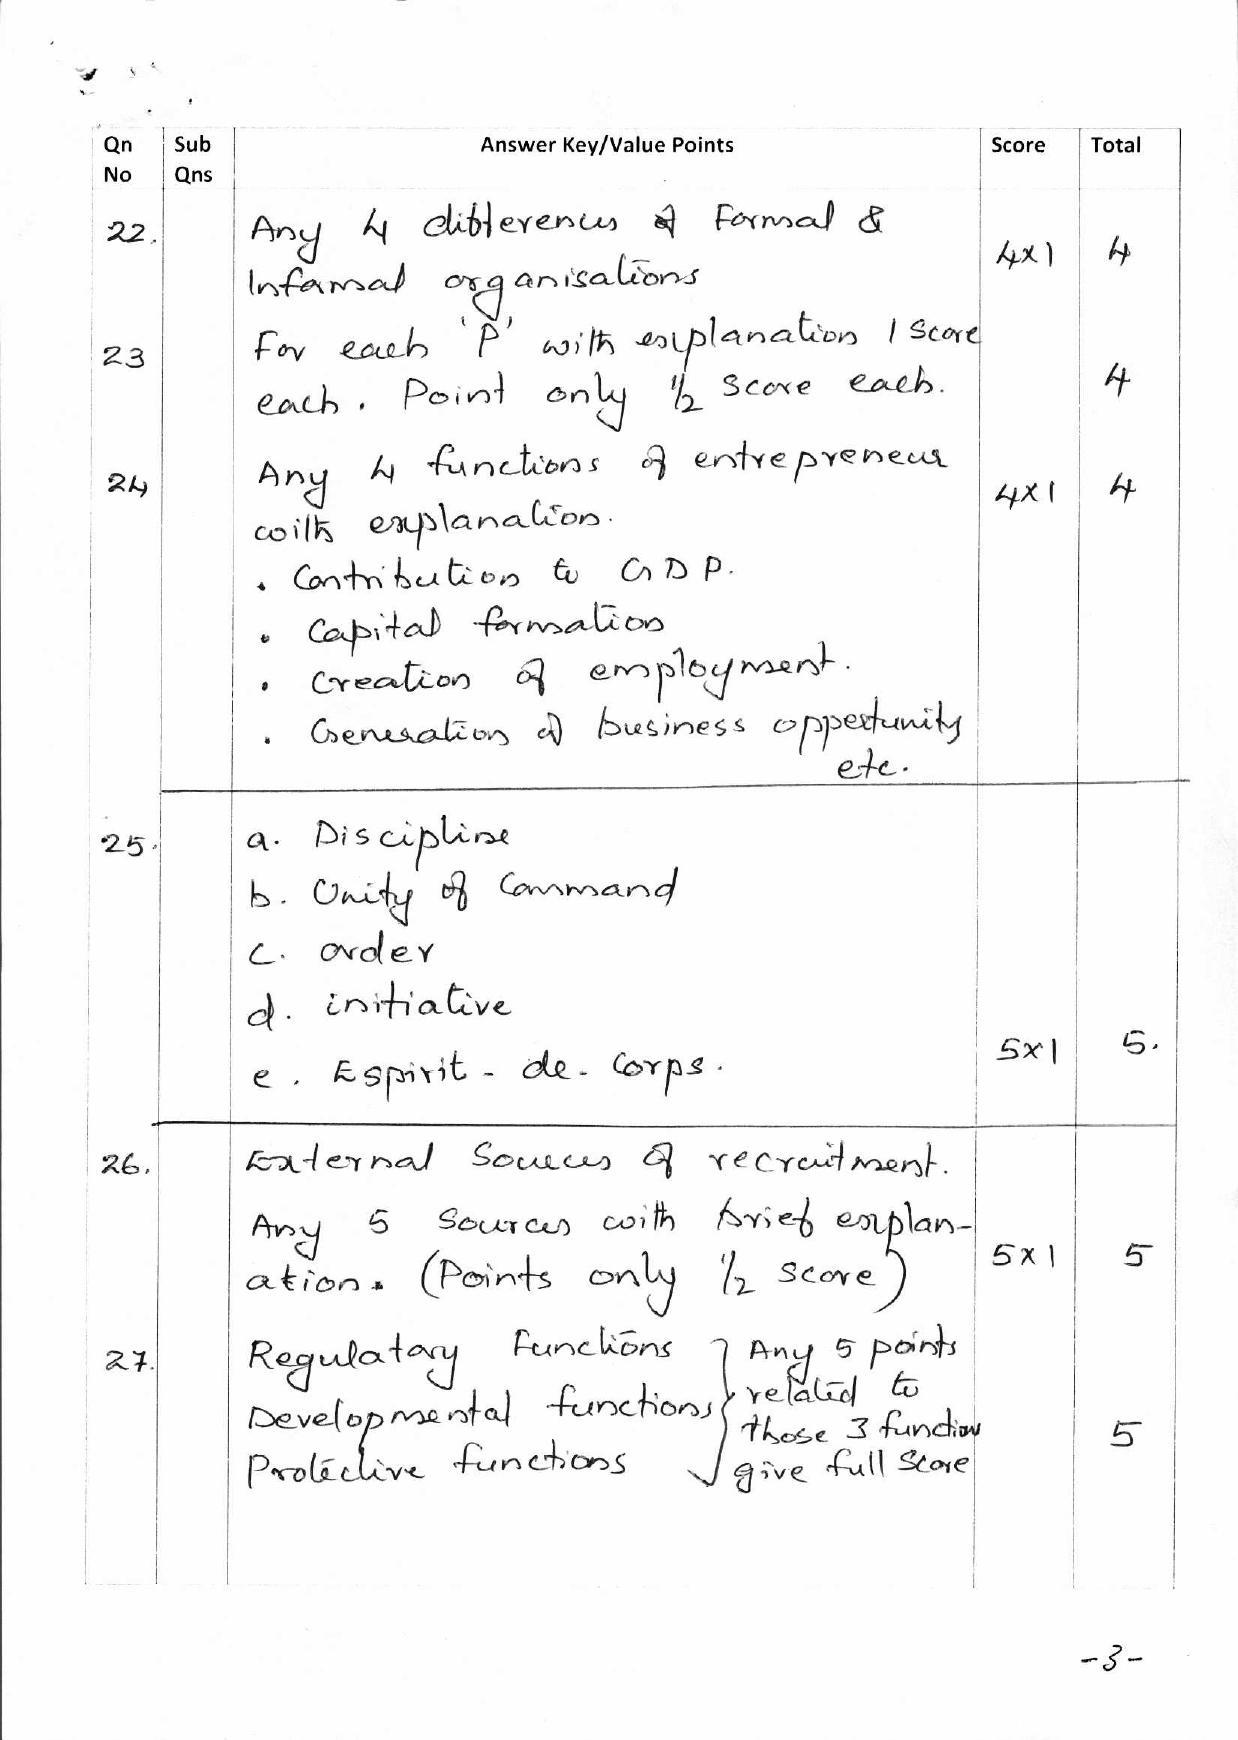 Qn Sub Answer Key/Value Points Score Total
No Qns
22. Any 4 differences of Formal &
Informal organisations 4x1 4
23 For each 'P' with explanation 1 Score
each. Point only 1/2 Score each. 4
24 Any 4 functions of entrepreneur 4x1 4
with explanation.
. Contribution to GDP.
. Capital formation
. Creation of employment.
. Generation of business oppertunity
etc.
25. a. Discipline
b. Unity of Command
c. order
d. initiative
e. Espirit - de - Corps. 5x1 5.
26. External Sources of recruitment.
Any 5 Sources with brief explan-
ation. (Points only 1/2 score) 5x1 5
27. Regulatory Functions } Any 5 points
Developmental functions related to
those 3 function 5
Protective functions give full Score
-3-